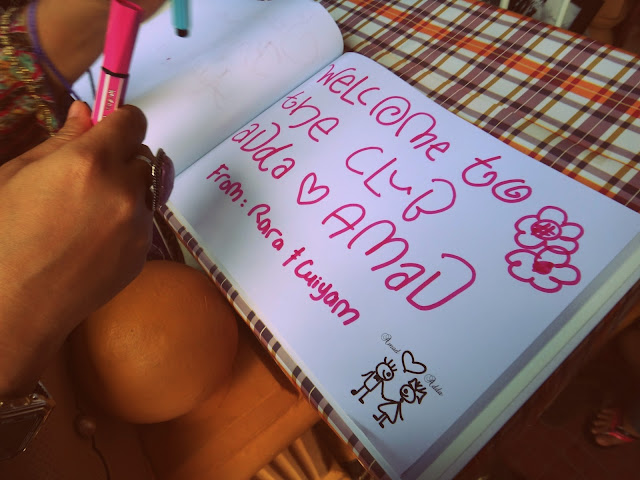 WELCOME too
the CLUB
adda ♡ AMAD
From: Rara + Cuiyam
Amad
Adda